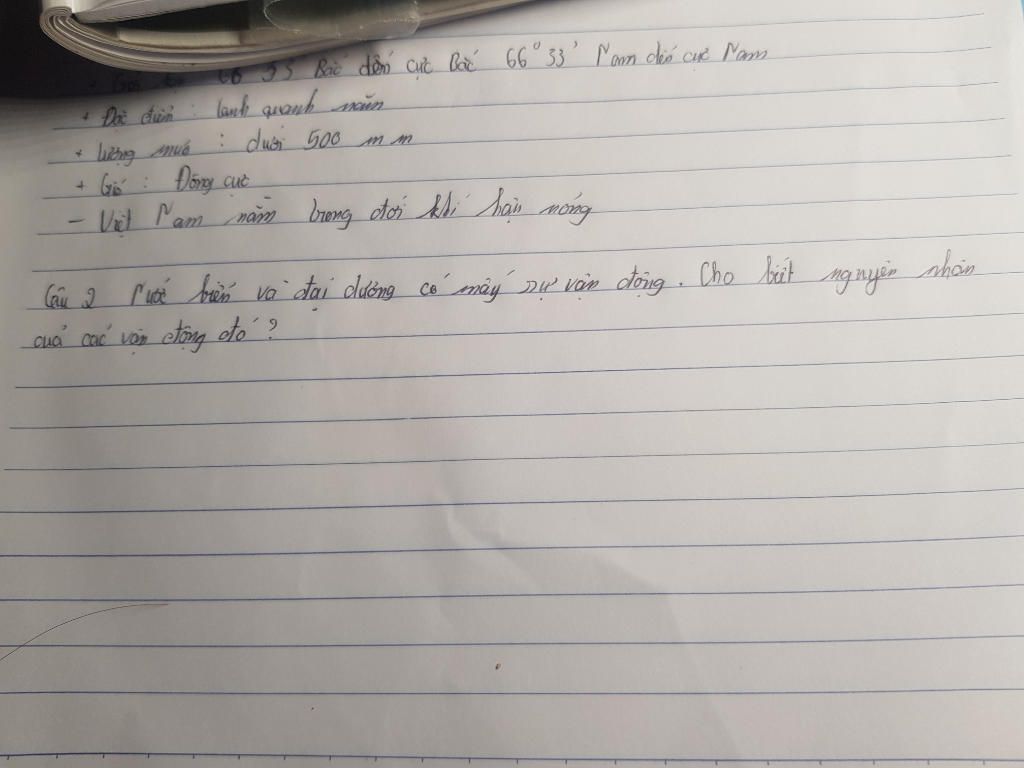 66° 33' Bắc đến cực Bắc 66° 33' Nam đến cực Nam
+ Đặc điểm : lạnh quanh năm
+ lượng mưa : dưới 500 mm
+ Gió : Đông cực
- Việt Nam nằm trong đới khí hậu nóng
Câu 2 Nước biển và đại dương có mấy sự vận động. Cho biết nguyên nhân
của các vận động đó ?